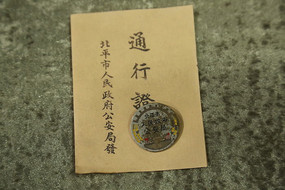 通行證
北平市人民政府公安局發